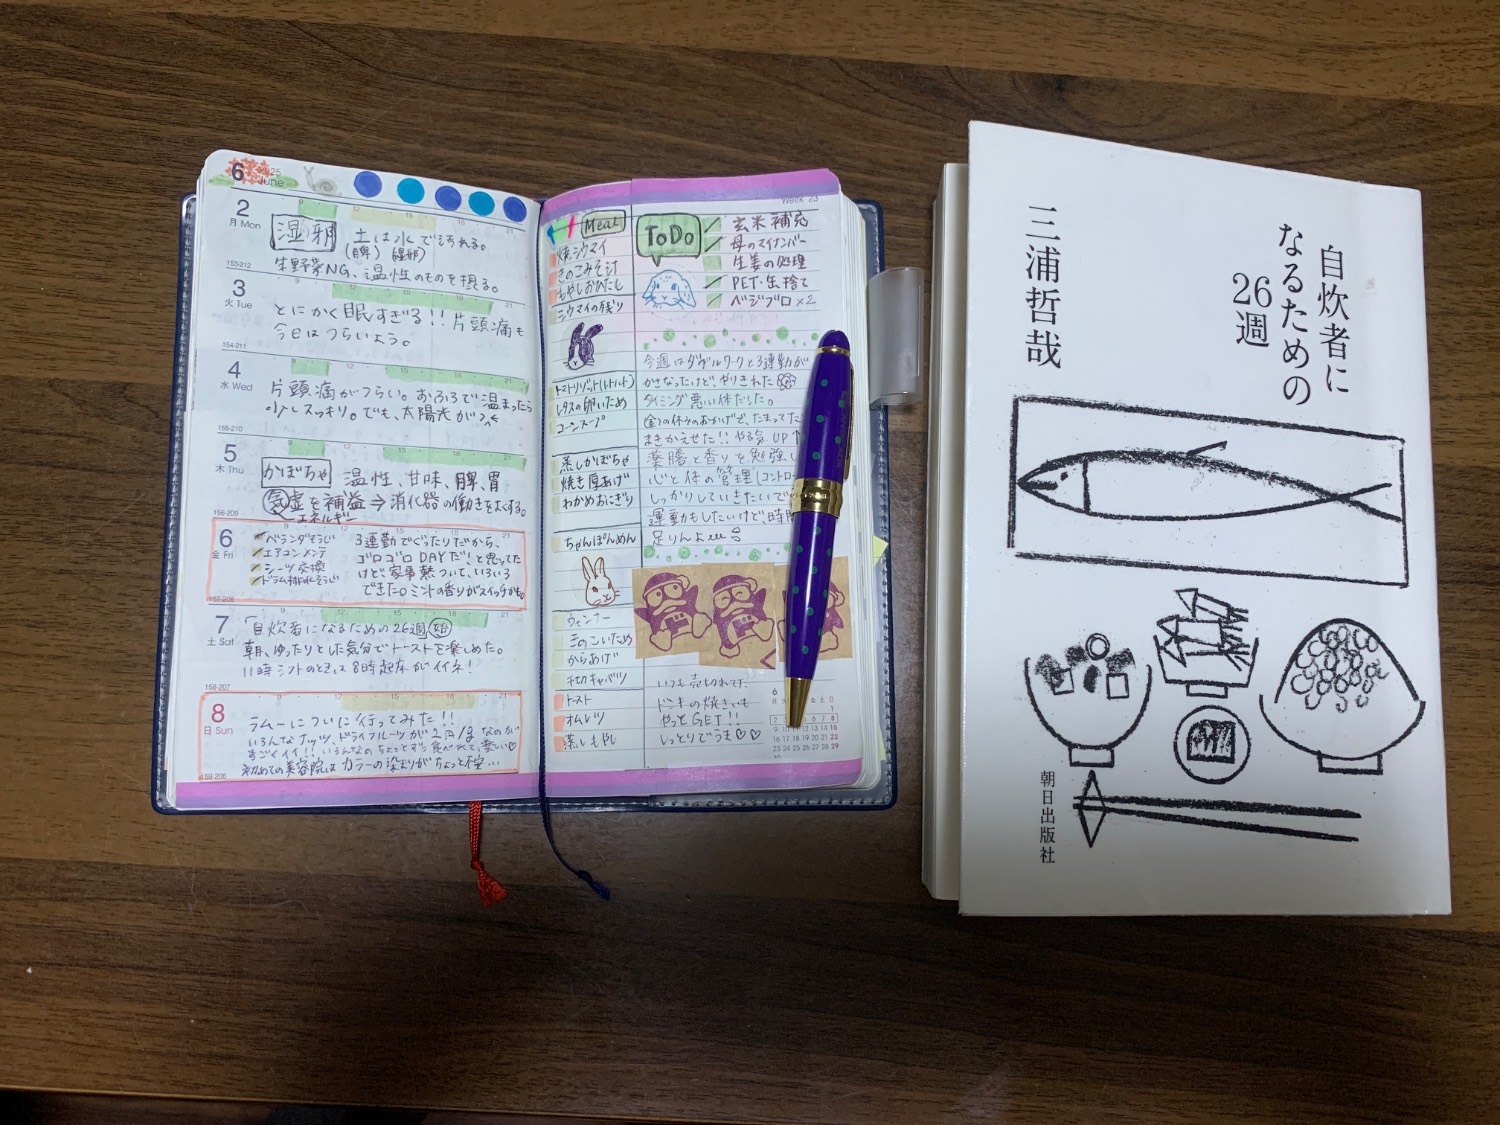 6
25
June
2
月 Mon
湿邪
土は水で汚れる。
(脾) (湿邪)
生野菜NG、温性のものを摂る。
153-212
3
火 Tue
とにかく眠すぎる!!片頭痛も
今日はつらいよう。
154-211
4
水 Wed
片頭痛がつらい。おふろで温まったら
少しスッキリ。でも、太陽光が
155-210
5
木 Thu
かぼちゃ 温性、甘味、脾、胃
気虚を補益⇒消化器の働きをよくする。
エネルギー
156-209
6
金 Fri
ベランダそうじ
エアコンメンテ
シーツ交換
ドラム排水そうじ
3連勤でぐったりだから、
ゴロゴロDAYだ!と思ってた
けど、家事熱ついて、いろいろ
できた。ミントの香りがスイッチかも。
157-208
7
土 Sat
「自炊者になるための26週」始
朝、ゆったりとした気分でトーストを楽しめた。
11時ミントのときって8時起床がイイネ!
158-207
8
日 Sun
ラムーについに行ってみた!!
いろんなナッツ、ドライフルーツが
すごくイイ!!いろんなのちょっとずつ食べれて、楽しい♡
初めての美容院はカラーの染まりがちょっと
159-206
Meal
焼シウマイ
きのこみそ汁
もやしおひたし
シウマイの残り
トマトリゾット(レトルト)
レタスの卵いため
コーンスープ
蒸しかぼちゃ
焼き厚あげ
わかめおにぎり
ちゃんぽんめん
ウィンナー
きのこいため
からあげ
千切キャベツ
トースト
オムレツ
蒸しもやし
Week 23
ToDo
玄米補充
母のマイナンバー
生姜の処理
PET・缶捨て
ベジブロ×2
今週はダブルワークと3連勤が
かさなったけど、やりきれた
タイミング悪い体だった。
(金)の休みのおかげで、たまってた
まきかえせた!!やる気UP↑
薬膳と香りを勉強し
心と体の管理(コントロー
しっかりしていきたいで
運動もしたいけど、時間
足りんよ
いつも売切れてた
ドンキの焼きいも
やっとGET!!
しっとりでうま♡♡
6
月
日
1
2
6 7 8
9 10 11 12 13 14 15
16 17 18 19 20 21 22
23 24 25 26 27 28 29
自炊者に
なるための
26週
三浦哲哉
朝日出版社